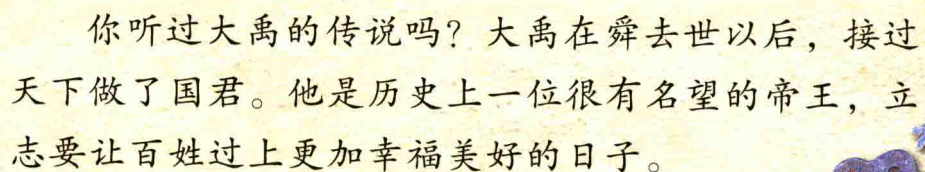 你听过大禹的传说吗？大禹在舜去世以后，接过
天下做了国君。他是历史上一位很有名望的帝王，立
志要让百姓过上更加幸福美好的日子。